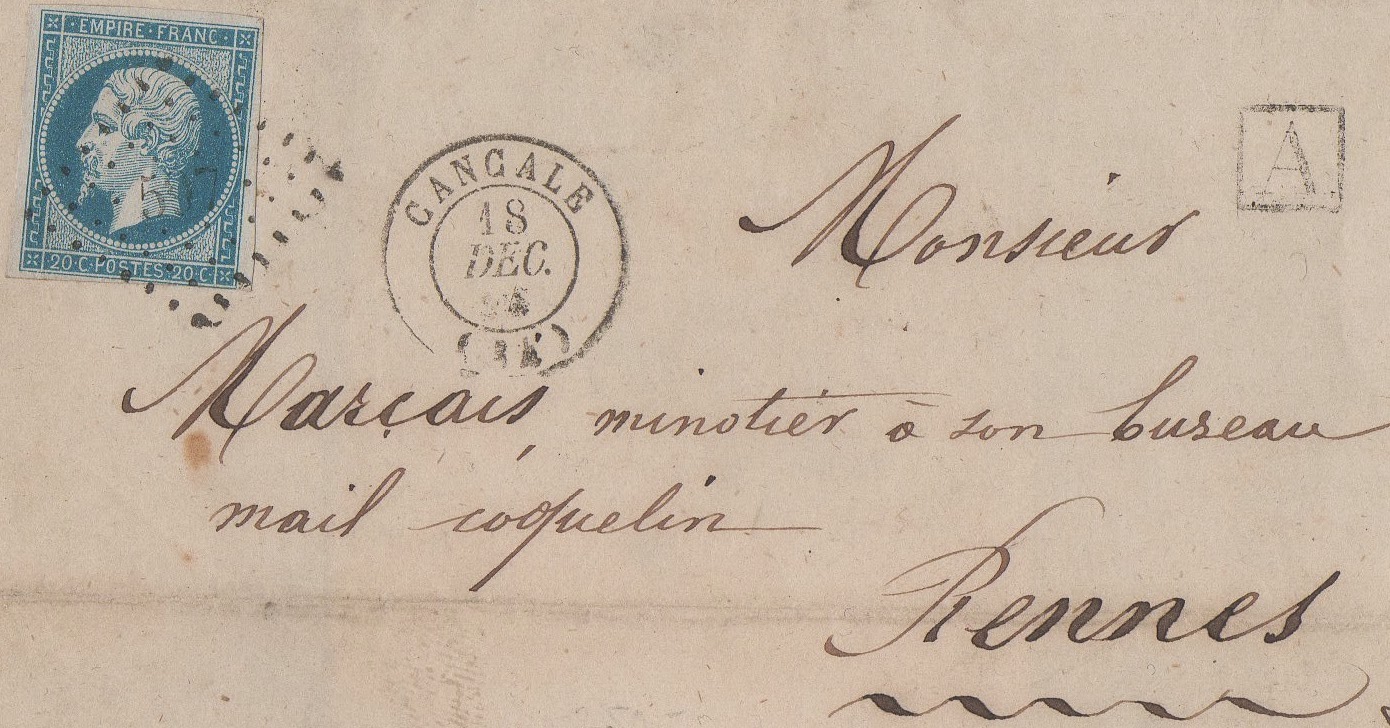 EMPIRE·FRANC·
20·C·POSTES·20·C·
CANCALE
18
DEC.
A
Monsieur
Marçais, minotier à son bureau
mail coquelin
Rennes